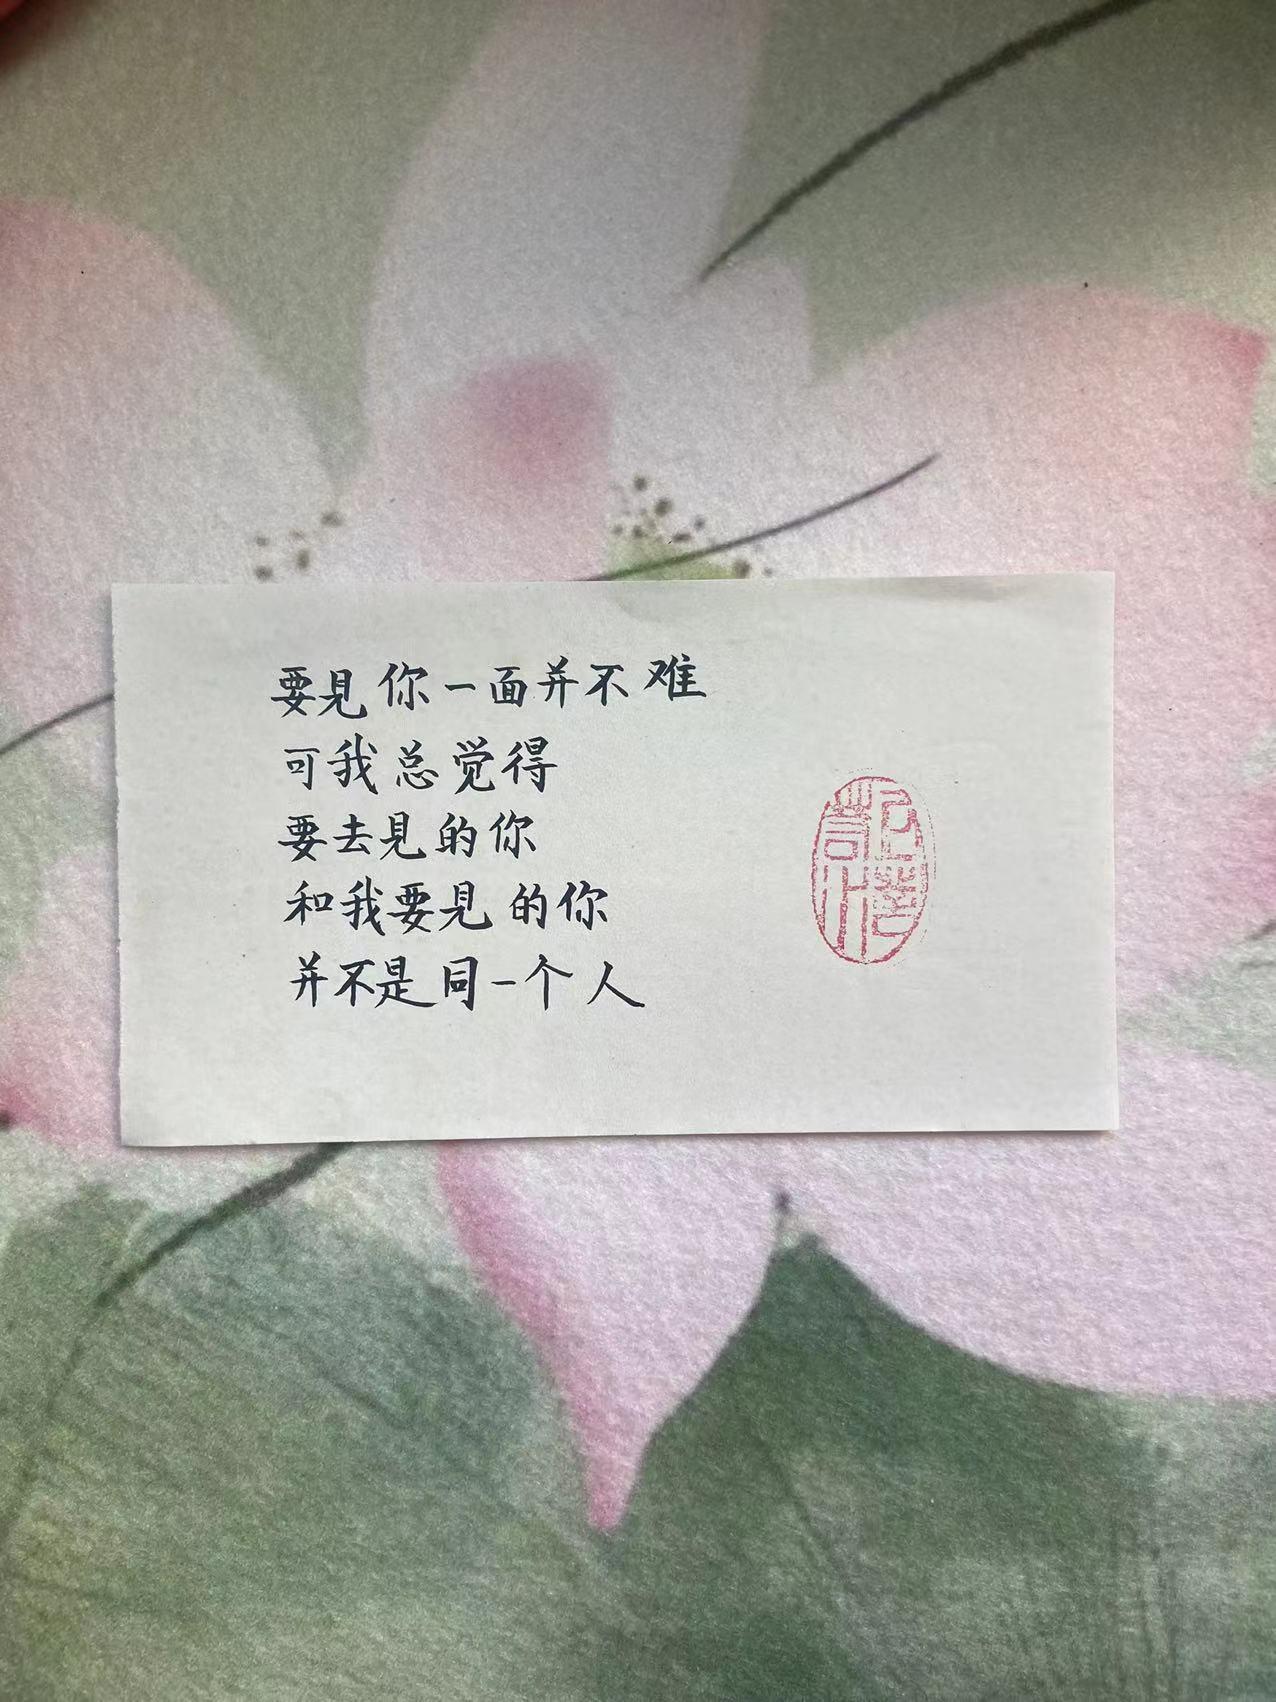 要见你一面并不难
可我总觉得
要去见的你
和我要见的你
并不是同一个人